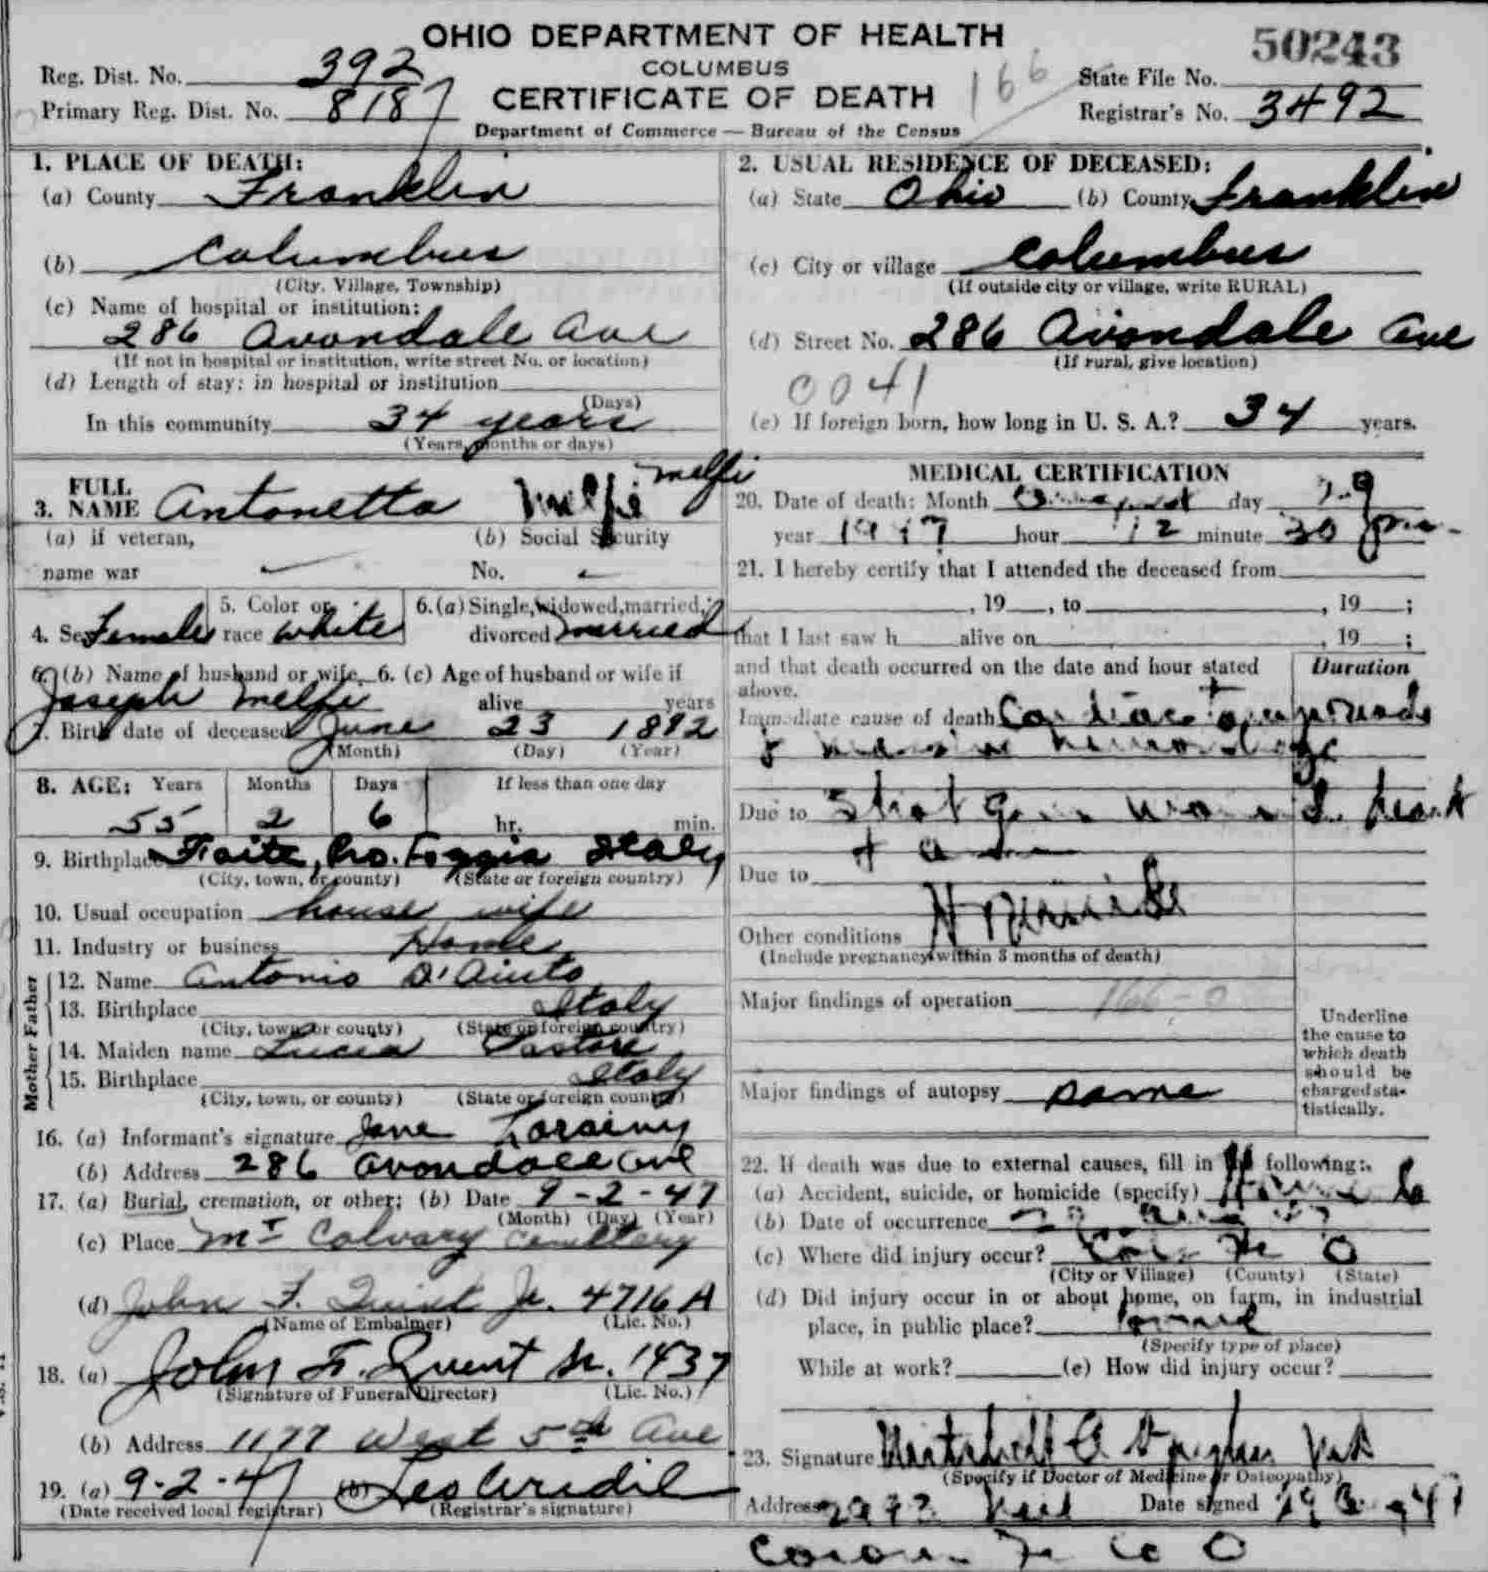 OHIO DEPARTMENT OF HEALTH
COLUMBUS
CERTIFICATE OF DEATH
Department of Commerce — Bureau of the Census
Reg. Dist. No. 392
Primary Reg. Dist. No. 8187
166
50243
State File No.
Registrar's No. 3492
1. PLACE OF DEATH:
(a) County Franklin
(b) Columbus
(City, Village, Township)
(c) Name of hospital or institution:
286 Avondale Ave
(If not in hospital or institution, write street No. or location)
(d) Length of stay: in hospital or institution
(Days)
In this community 34 years
(Years, months or days)
2. USUAL RESIDENCE OF DECEASED:
(a) State Ohio (b) County Franklin
(c) City or village Columbus
(If outside city or village, write RURAL)
(d) Street No. 286 Avondale Ave
(If rural, give location)
0041
(e) If foreign born, how long in U. S. A.? 34 years.
3. FULL NAME Antonetta Melfi Melfi
(a) if veteran, name war
(b) Social Security No.
4. Sex Female 5. Color or race white 6. (a) Single, widowed, married, divorced married
6. (b) Name of husband or wife Joseph Melfi 6. (c) Age of husband or wife if alive years
7. Birth date of deceased June 23 1892
(Month) (Day) (Year)
8. AGE: Years Months Days If less than one day
55 2 6 hr. min.
9. Birthplace Pro. Foggia Italy
(City, town, or county) (State or foreign country)
10. Usual occupation house wife
11. Industry or business Home
Father
12. Name Antonio D'Aiuto
13. Birthplace Italy
(City, town or county) (State or foreign country)
Mother
14. Maiden name Lucia Pastore
15. Birthplace Italy
(City, town, or county) (State or foreign country)
16. (a) Informant's signature Jane
(b) Address 286 Avondale Ave
17. (a) Burial, cremation, or other; (b) Date 9-2-47
(Month) (Day) (Year)
(c) Place Mt Calvary Cemetery
(d) John F. Quint Jr. 4716 A
(Name of Embalmer) (Lic. No.)
18. (a) John F. Quint Sr. 1437
(Signature of Funeral Director) (Lic. No.)
(b) Address 1177 West 5th Ave
19. (a) 9-2-47 (b)
(Date received local registrar) (Registrar's signature)
MEDICAL CERTIFICATION
20. Date of death: Month August day 29
year 1947 hour 12 minute 30 pm
21. I hereby certify that I attended the deceased from
, 19 , to , 19 ;
that I last saw h alive on , 19 ;
and that death occurred on the date and hour stated above.
Duration
Immediate cause of death Cardiac tamponade
& hemorrhage
Due to Shot gun wound heart
Due to
Homicide
Other conditions
(Include pregnancy within 3 months of death)
Major findings of operation 166-0
Major findings of autopsy same
Underline the cause to which death should be charged statistically.
22. If death was due to external causes, fill in the following:
(a) Accident, suicide, or homicide (specify) Homicide
(b) Date of occurrence 29 Aug 47
(c) Where did injury occur? Col. O
(City or Village) (County) (State)
(d) Did injury occur in or about home, on farm, in industrial
place, in public place?
(Specify type of place)
While at work? (e) How did injury occur?
23. Signature
(Specify if Doctor of Medicine or Osteopathy)
Address Neil Date signed 29 Aug 47
Coroner O